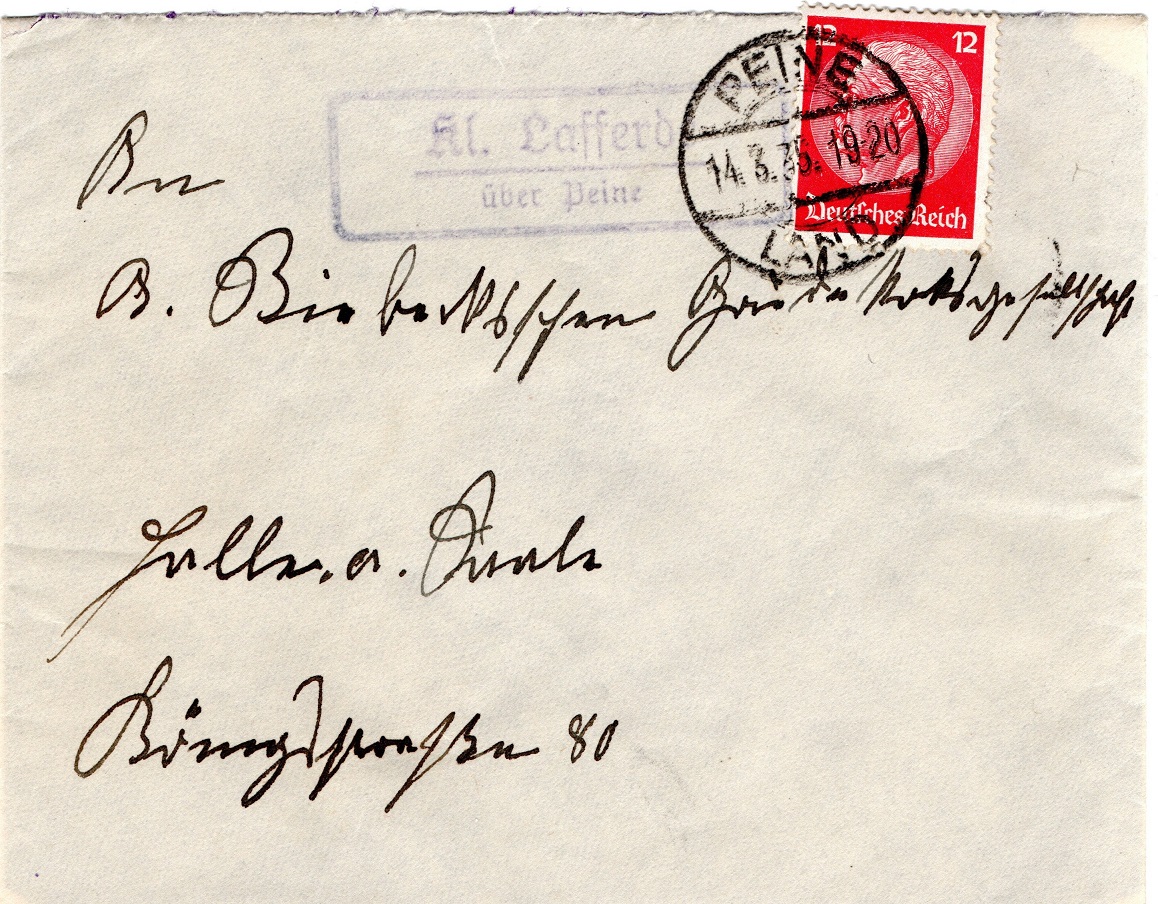 12 12
PEINE
14.3.35.19-20
LAND
Deutsches Reich
Kl. Lafferd
über Peine
An
A. Riebecksschen Grude Koksgesellschaft
Halle. a. Saale
Königsstraße 80